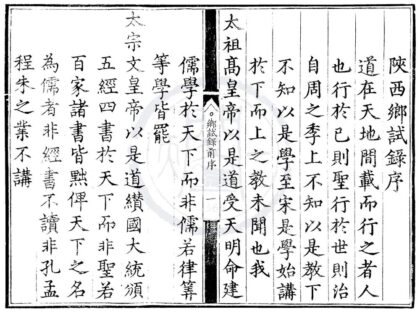 陝西鄉試錄序
道在天地間載而行之者人
也行於己則聖行於世則治
自周之季上不知以是教下
不知以是學至宋是學始講
於下而上之教未聞也我
鄉試錄前序
一
太祖高皇帝以是道受天明命建
儒學於天下而非儒若律算
等學皆罷
太宗文皇帝以是道纘國大統頒
五經四書於天下而非聖若
百家諸書皆黜俾天下之名
為儒者非經書不讀非孔孟
程朱之業不講